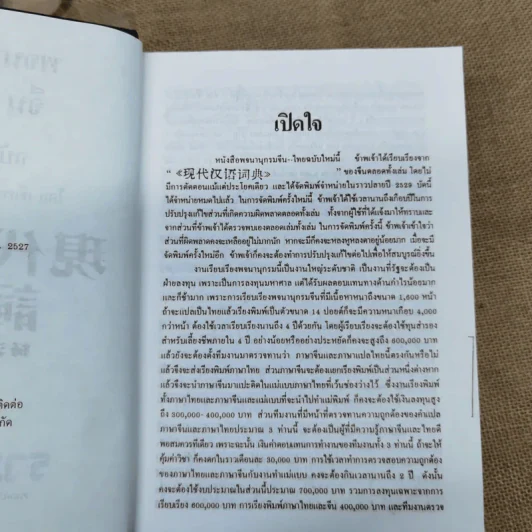 2527
ติดต่อ
กัด
เปิดใจ
หนังสือพจนานุกรมจีน-ไทยฉบับใหม่นี้ ข้าพเจ้าได้เรียบเรียงจาก
" 《现代汉语词典》 " ของจีนตลอดทั้งเล่ม โดยไม่
มีการตัดตอนแม้แต่ประโยคเดียว และได้จัดพิมพ์จำหน่ายในราวปลายปี 2529 บัดนี้
ได้จำหน่ายหมดไปแล้ว ในการจัดพิมพ์ครั้งนี้ ข้าพเจ้าได้ใช้เวลานานถึงเกือบปีในการ
ปรับปรุงแก้ไขส่วนที่เกิดความผิดพลาดตลอดทั้งเล่ม ทั้งจากผู้ใช้ที่ได้แจ้งมาให้ทราบและ
จากส่วนที่ข้าพเจ้าได้ตรวจพบเองตลอดเล่มทั้งเล่ม ในการจัดพิมพ์ครั้งนี้ ข้าพเจ้าเข้าใจว่า
ส่วนที่ผิดพลาดคงจะเหลืออยู่ไม่มากนัก หากจะมีก็คงจะหลงหูหลงตาอยู่น้อยมาก เมื่อจะมี
จัดพิมพ์ครั้งใหม่อีก ข้าพเจ้าก็คงจะต้องทำการปรับปรุงแก้ไขต่อไปเพื่อให้สมบูรณ์ยิ่งขึ้น
งานเรียบเรียงพจนานุกรมนี้เป็นงานใหญ่ระดับชาติ เป็นงานที่รัฐจะต้องเป็น
ฝ่ายลงทุน เพราะเป็นการลงทุนมหาศาล แต่ได้รับผลตอบแทนทางด้านกำไรน้อยมาก
และก็ช้ามาก เพราะการเรียบเรียงพจนานุกรมจีนที่มีเนื้อหาหนาถึงขนาด 1,600 หน้า
ถ้าจะแปลเป็นไทยแล้วเรียงพิมพ์เป็นตัวขนาด 14 ปอยต์ก็จะมีความหนาเกือบ 4,000
กว่าหน้า ต้องใช้เวลาเรียบเรียงนานถึง 4 ปีด้วยกัน โดยผู้เรียบเรียงจะต้องใช้ทุนสำรอง
สำหรับเลี้ยงชีพภายใน 4 ปี อย่างน้อยหรืออย่างประหยัดก็คงจะสูงถึง 600,000 บาท
แล้วยังจะต้องตั้งทีมงานมาตรวจทานว่า ภาษาจีนและภาษาแปลไทยนี้ตรงกันหรือไม่
แล้วจึงจะส่งเรียงพิมพ์ภาษาไทย ส่วนภาษาจีนจะต้องแยกเรียงพิมพ์เป็นส่วนหนึ่งต่างหาก
แล้วจึงจะนำภาษาจีนมาแปะติดในแม่แบบภาษาไทยที่เว้นช่องว่างไว้ ซึ่งงานเรียงพิมพ์
ทั้งภาษาไทยและภาษาจีนและแม่แบบที่จะนำไปทำแม่พิมพ์ ก็คงจะต้องใช้เงินลงทุนสูง
ถึง 300,000-400,000 บาท ส่วนทีมงานที่มีหน้าที่ตรวจทานความถูกต้องของคำแปล
ภาษาจีนและภาษาไทยประมาณ 3 ท่านนี้ จะต้องเป็นผู้ที่มีความรู้ภาษาจีนและไทยดี
พอสมควรทีเดียว เพราะฉะนั้น เงินค่าตอบแทนการทำงานของทีมงานทั้ง 3 ท่านนี้ ถ้าจะให้
คุ้มค่าวิชา ก็คงตกในราวเดือนละ 30,000 บาท การใช้เวลาทำการตรวจสอบความถูกต้อง
ของภาษาไทยและภาษาจีนกับงานทำแม่แบบ คงจะต้องกินเวลานานถึง 2 ปี ดังนั้น
คงจะต้องใช้งบประมาณในส่วนนี้ประมาณ 700,000 บาท รวมการลงทุนเฉพาะจากการ
เรียบเรียง 600,000 บาท การเรียงพิมพ์ไทยและจีน 400,000 บาท และทีมงานตรวจ